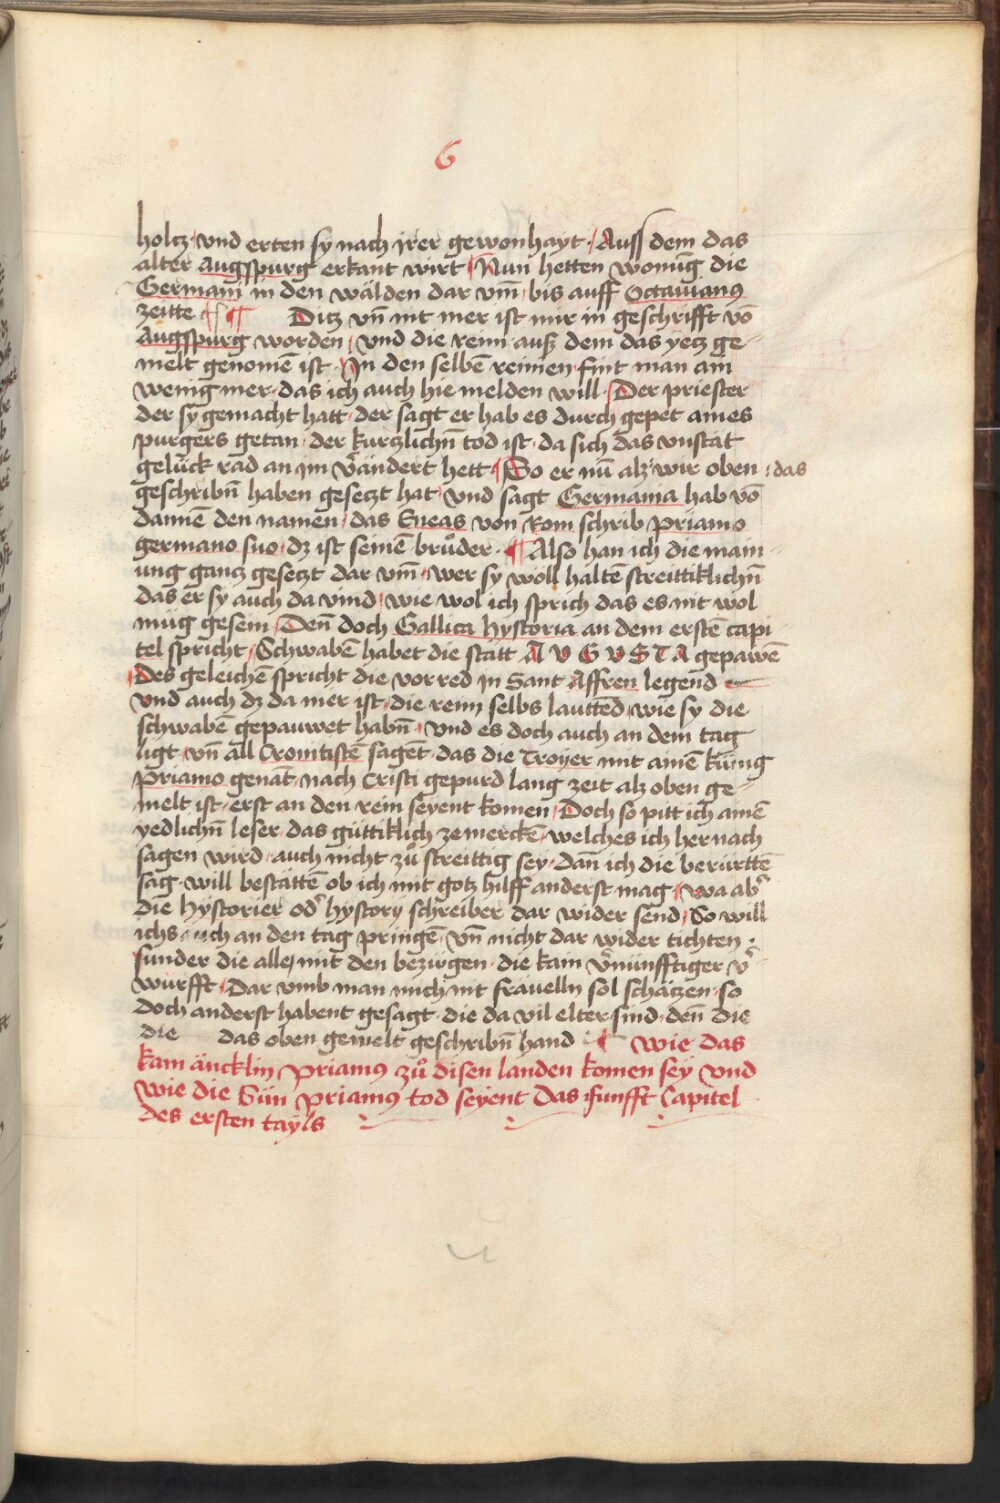 6
holtz · vnd erten sy nach jrer gewonhayt · Auss dem das
alter Augspurg erkant wirt Nun hetten wonūg die
Germanj in den wälden dar vm̄ · bis auff Octauianꝰ
zeitte ¶ Ditz vn̄ nit mer ist mir in geschrifft vō
Augspurg worden · vnd die reim auß dem das yetz ge-
melt genomē ist · In den selbē reimen fint man ain
wenig mer · das ich auch hie melden will · Der priester
der sy gemacht hatt · der sagt er hab es durch gepet aines
purgers getan · der kurtzlichn̄ tod ist · da sich das vnstät
gelück rad an im v̄ändert hett · So er nū alz wir oben · das
geschribn̄ haben gesetzt hat · vnd sagt Germania hab vō
dannē den namen · das Eneas von Rom schrib priamo
germano suo · dz ist seinē brůder · ¶ Also han ich die main-
ung gantz gesetzt dar vm̄ · wer sy wöll haltē streittiklichn̄
das er sy auch da vind · wie wol ich sprich das es nit wol
müg gesein · Den̄ doch Gallica hystoria an dem erstē capi
tel spricht · Schwabē habet die statt AVGVSTA gepawē
Des geleichē spricht die vorred in Sant Affren legend
vnd auch dz da mer ist · die reim selbs lautted wie sy die
schwabē gepauwet habn̄ · vnd es doch auch an dem tag
ligt · vn̄ all Cronitistē sagēt · das die Troyer mit ainē küng
priamo genāt · nach Cristi gepurd lang zeit alz oben ge-
melt ist · erst an den rein seyent komen · Doch so pitt ich ainē
yedlichn̄ leser · das güttiklich ze merckē · welches ich her nach
sagen wird · auch nicht zů streittig sey · dan̄ ich die berürttē
sag · will bestättē ob ich mit gotz hilff anderst mag · wa ab̓
die hystorier od̓ hystorij schreiber dar wider send · So will
ichs auch an den tag pringē · vn̄ nicht dar wider tichten ·
sunder die alle mit den bezügen · die kain v̓nünfftiger v̓
würfft · Dar vmb man mich nit fräuelln sol schätzen · so
doch anderst habent gesagt · die da vil elter sind · den̄ die
die das oben gemelt geschribn̄ hand · ¶ wie das
kain äncklin priamꝰ zů disen landen komen sey vnd
wie die Sün priamꝰ tod seyent Das funfft Capitel
des ersten tayls